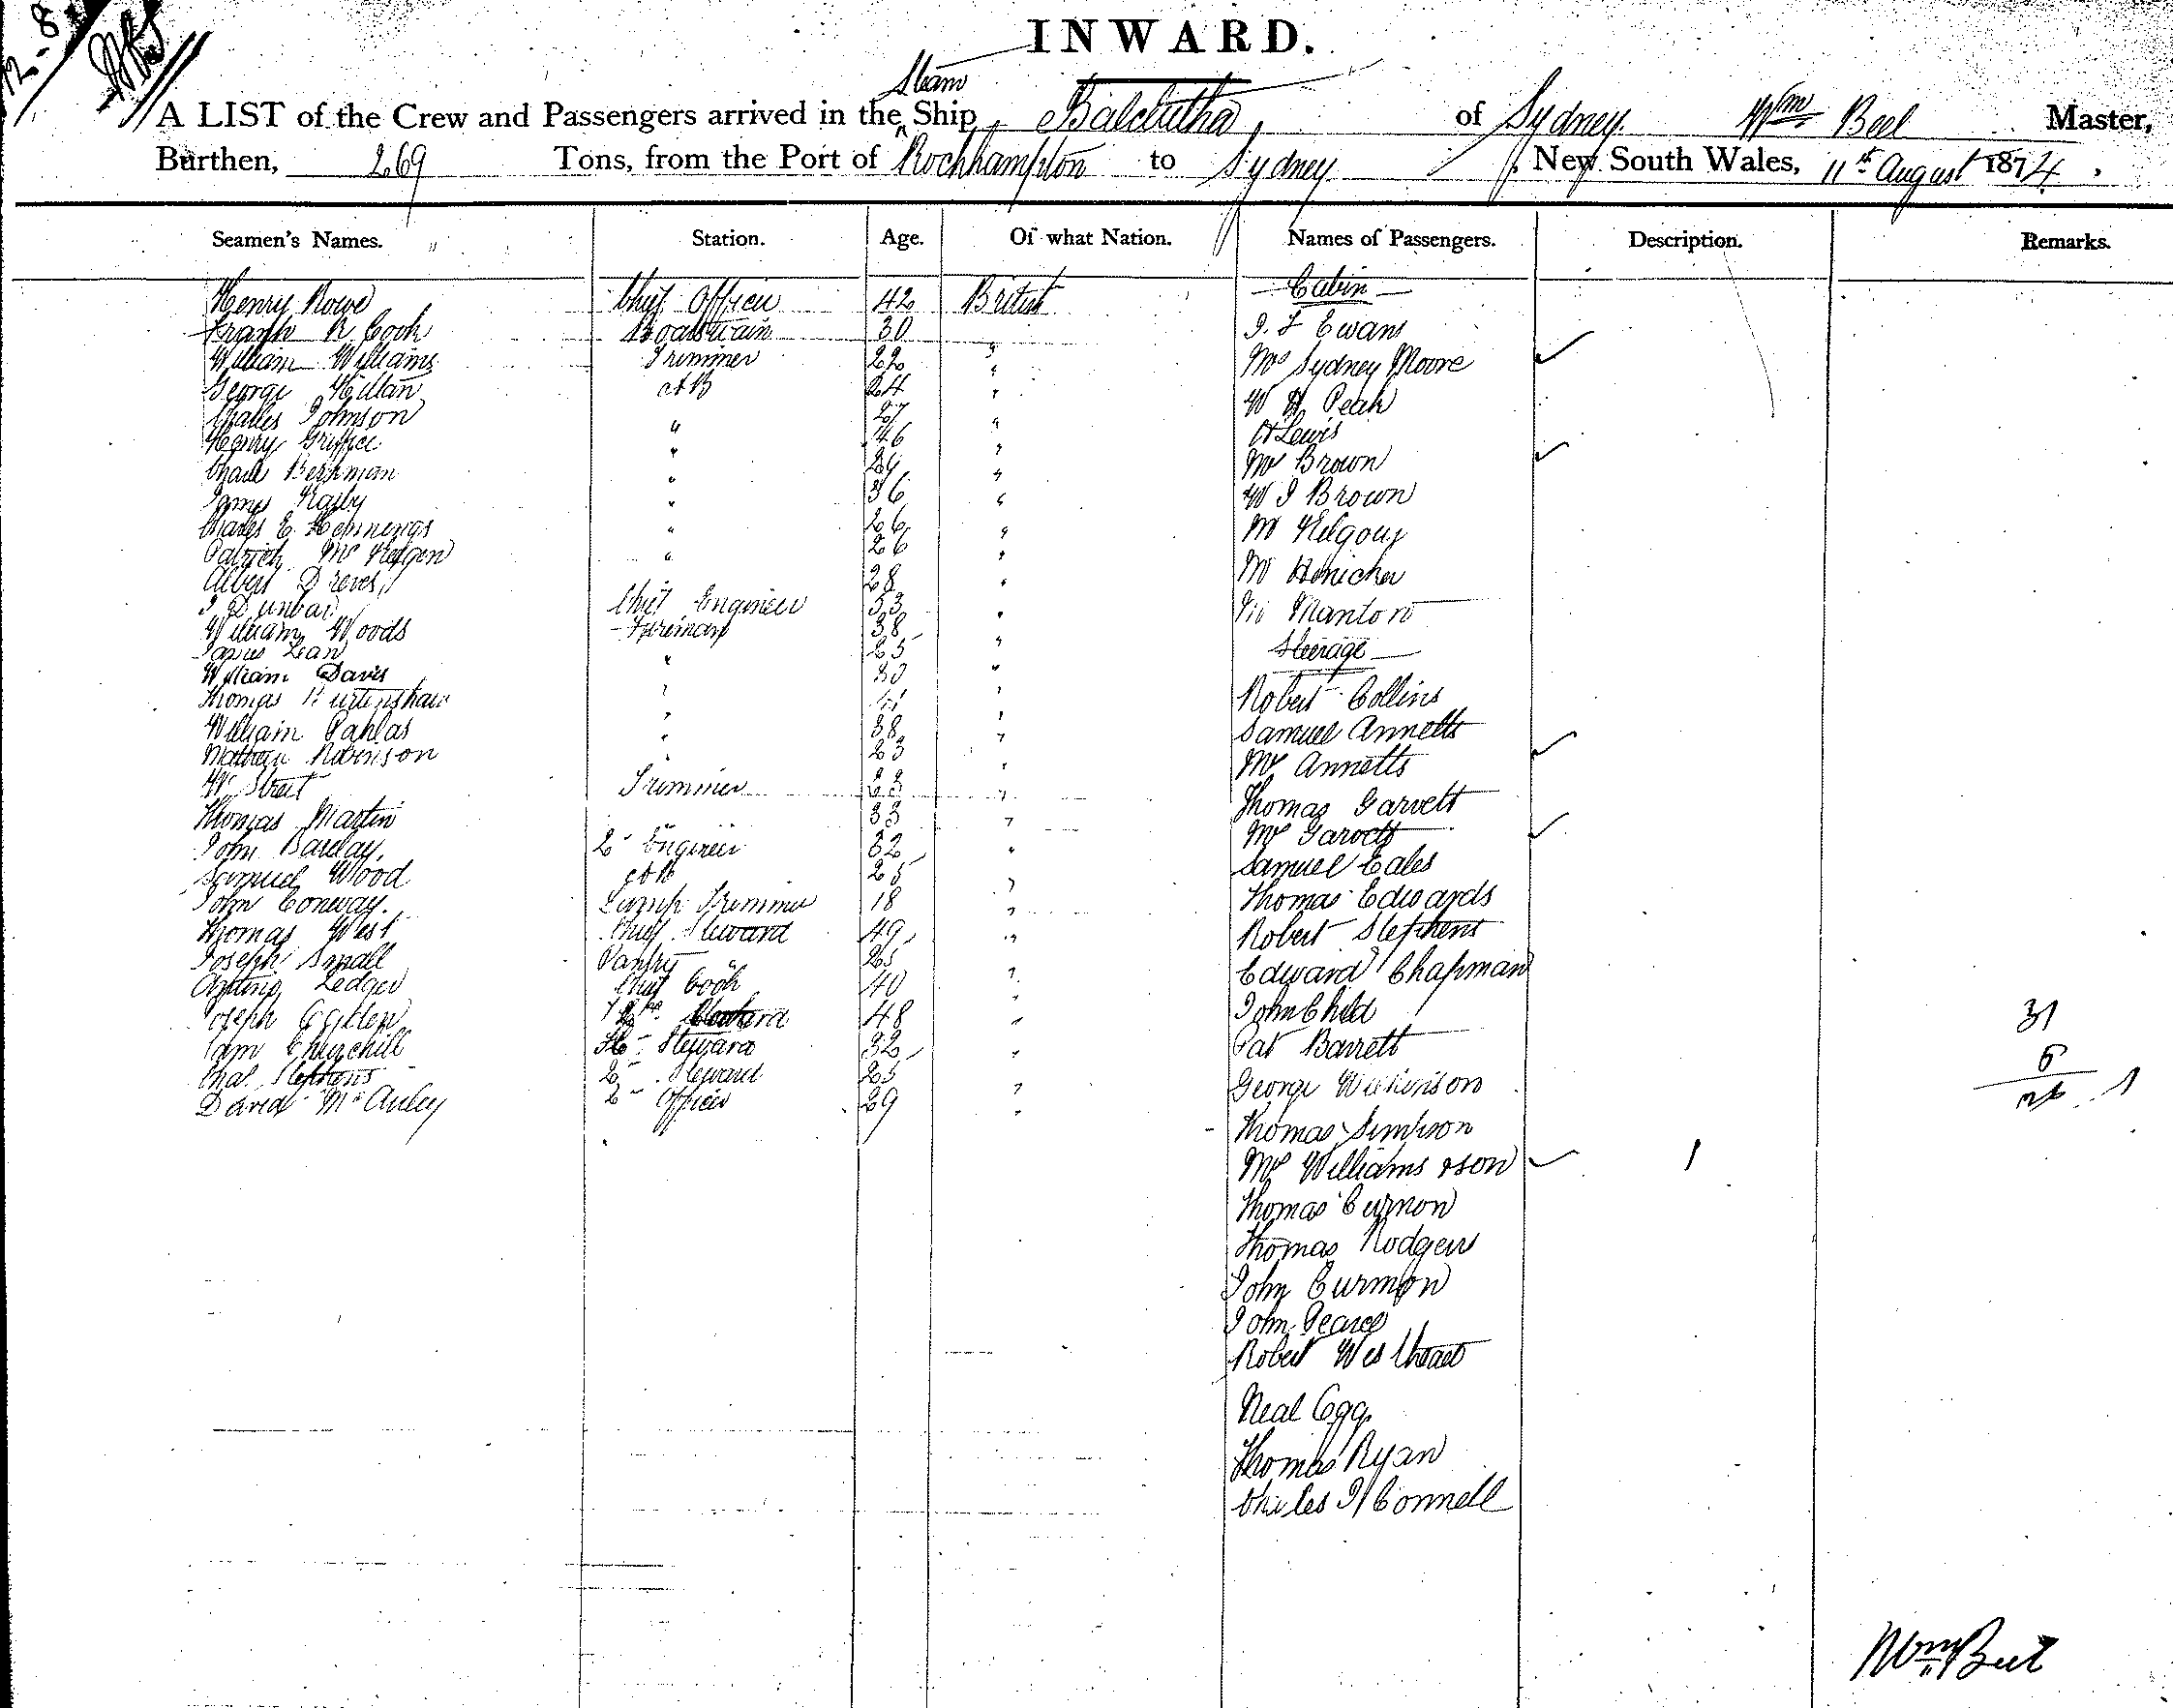 12-8
INWARD.
Steam
A LIST of the Crew and Passengers arrived in the Ship Balclutha, of Sydney Wm Beel Master,
Burthen, 269 Tons, from the Port of Rockhampton to Sydney, New South Wales, 11th August 1874.
Seamen's Names. Station. Age. Of what Nation. Names of Passengers. Description. Remarks.
Henry Rowe Chief Officer 42 British
Frank R Cook Boatswain 30 "
William Williams Trimmer 22 "
George Killan AB 24 "
Charles Johnson " 27 "
Henry " 46 "
Berkman "
James " 36 "
Charles E. Hennings " 26 "
Patrick Mc " 26 "
Albert Dreves 28 "
J Dunbar Chief Engineer 53 "
William Woods Fireman 38 "
James Lean " 25 "
William Davis " 30 "
Thomas Burtenshaw " "
William Pahlas " 38 "
Mathew Robinson " 23 "
Wm Street Trimmer "
Thomas Martin " 33 "
John Barclay. 2nd Engineer 32 "
Samuel Wood AB 25 "
John Conway. Lamp Trimmer 18 "
Thomas West Chief Steward 49 "
Joseph Small Pantry " 25 "
Ledger Chief Cook 40 "
Joseph 48 "
Churchill Steward 32 "
Chas. Stephens 2 Steward 25 "
David McAuley 2nd Officer 29 "
Cabin
J. F Ewans
Mrs Sydney Moore
W H Peak
A Lewis
Mrs Brown
W J Brown
Mr Kilgour
Mr
Mr Manton
Steerage
Robert Collins
Samuel Annetts
Mrs Annetts
Thomas Garrett
Mrs Garrett
Samuel Eales
Thomas Edwards
Robert Stephens
Edward Chapman
John Child
Pat Barrett
George Wilkinson
Thomas Simpson
Mrs Williams & son 1
Thomas Curnon
Thomas Rodgers
John Curmon
John Pearce
Robert
Neal Egg
Thomas Ryan
Charles O'Connell
31
5
26 . 1
Wm Beel